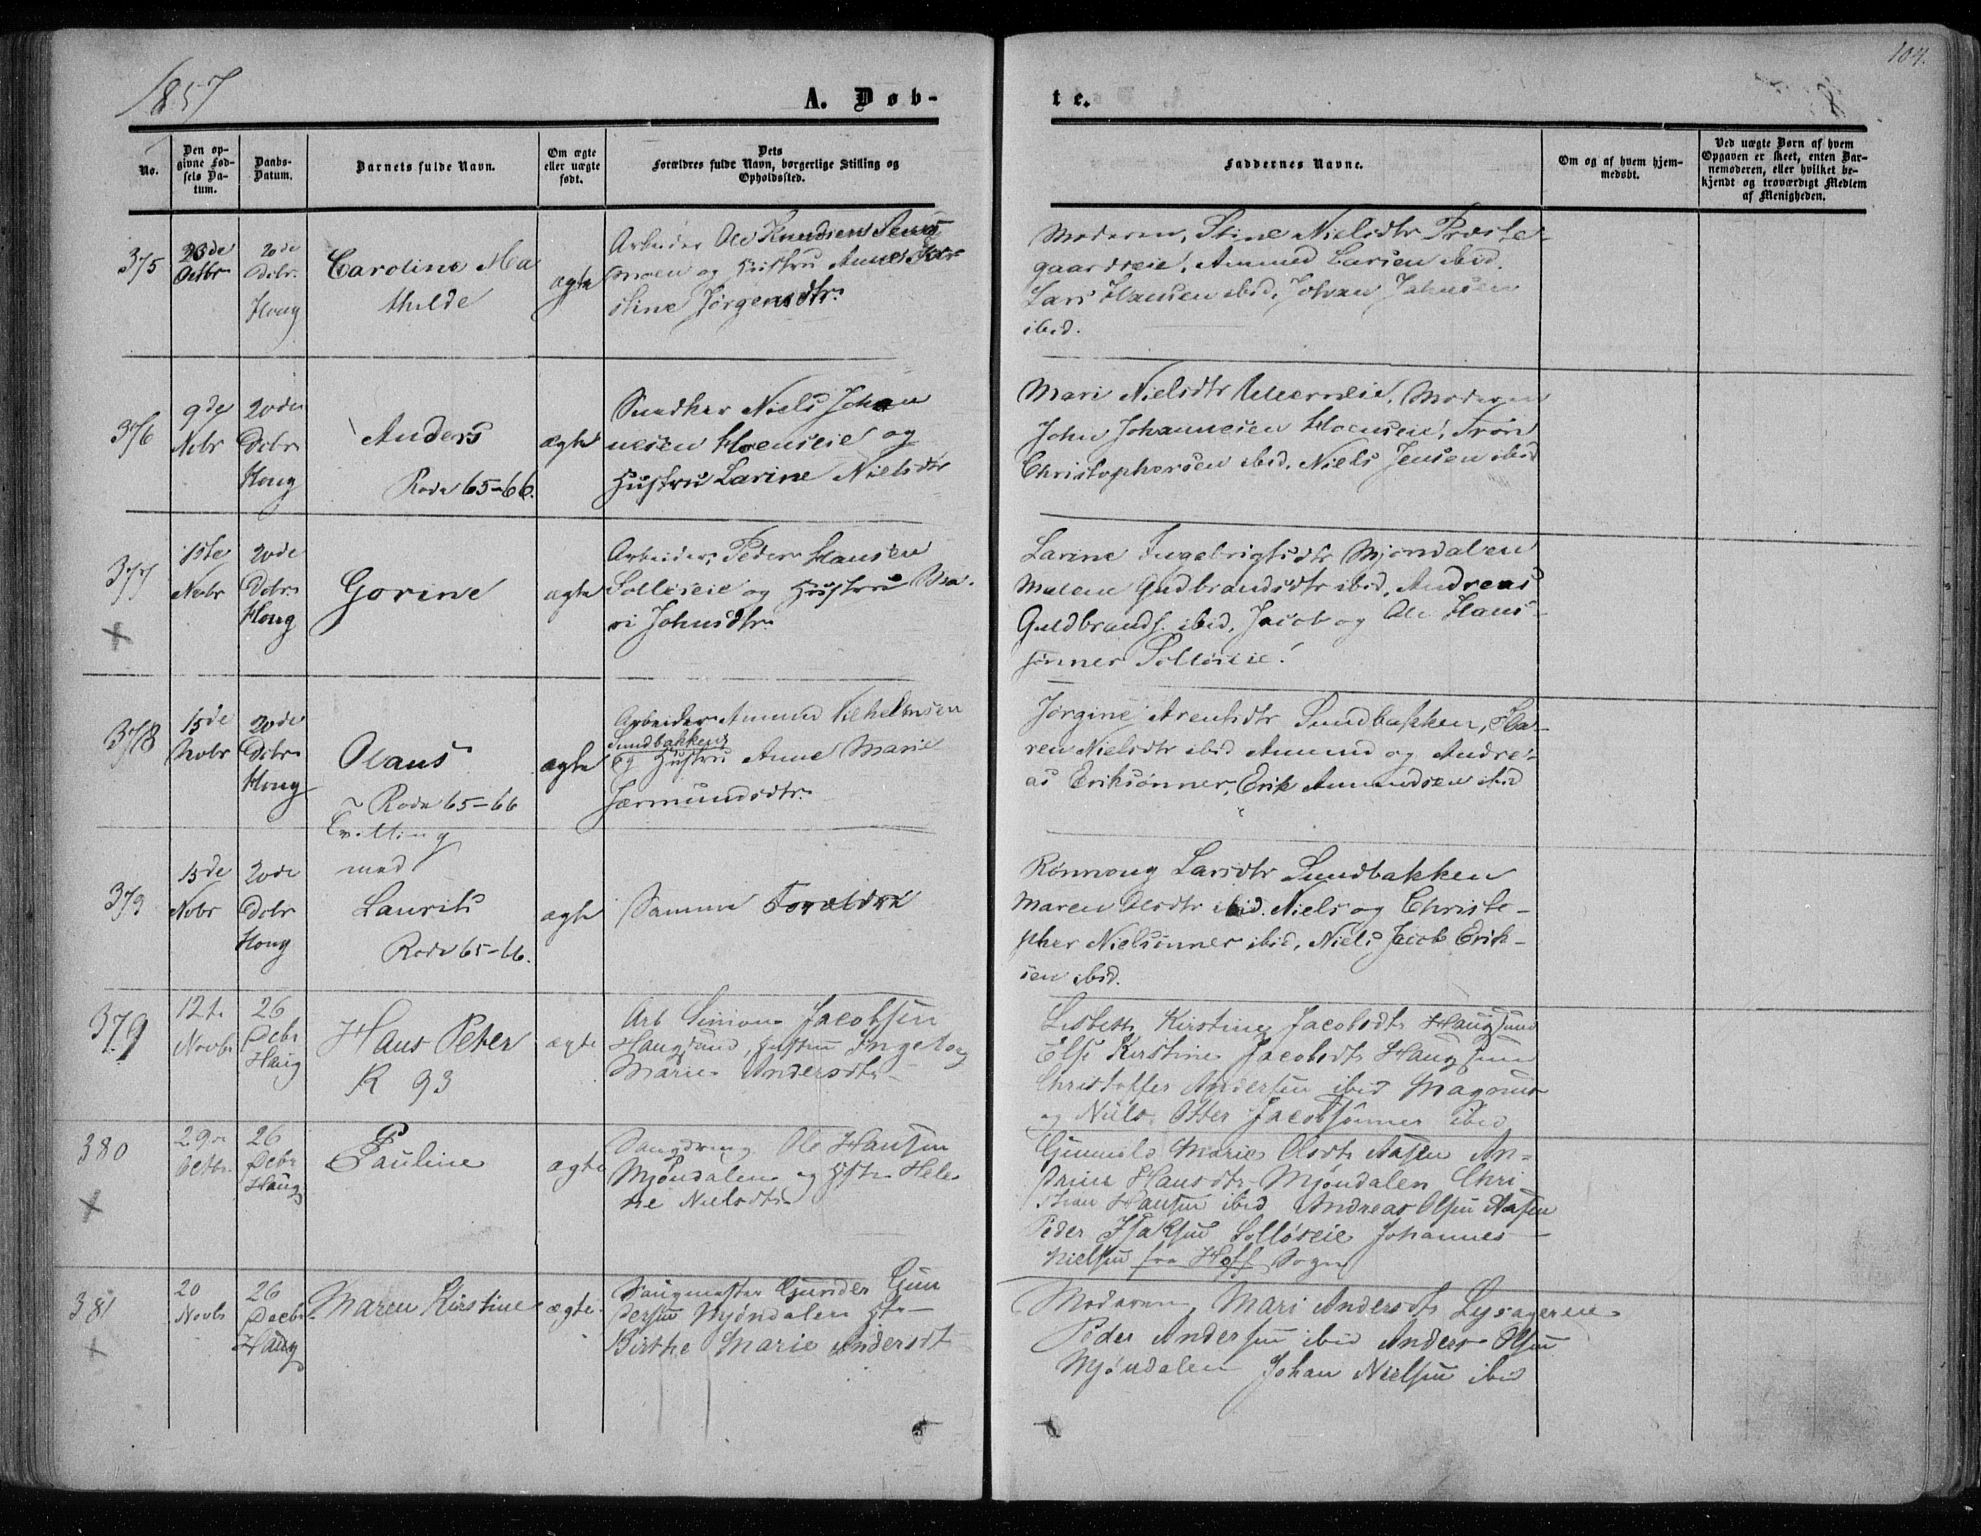 1857
104.
A. Døb-
te.
No.
Den opgivne Fødsels Datum.
Daabs-Datum.
Barnets fulde Navn.
Om ægte eller uægte født.
Dets Forældres fulde Navn, borgerlige Stilling og Opholdssted.
Faddernes Navne.
Om og af hvem hjemmedøbt.
Ved uægte Børn af hvem Opgaven er skeet, enten Barnemoderen, eller hvilket bekjendt og troværdigt Medlem af Menigheden.
375
23de Octbr
20de Dcbr Houg
Caroline Ma
thilde
ægte
Arbeider Ole Knudsen
moen og Hustru Anne
stine Jørgensdtr.
Moderen, Stine Nielsdtr Præste-
gaardseie, Ammund Larsen ibid.
Lars Hansen ibid, Johan Johnsen
ibid.
376
9de Nobr
20de Dcbr Houg
Anders
Rode 65-66.
ægte
Snedker Niels Johan
nesen Hoenseie og
Hustru Larine Nielsdtr
Mari Nielsdtr Moderen
John Johannesen Hoenseie, Trøn
Christophersen ibid, Niels Jensen ibid
377
15de Nobr
20de Dcbr Houg
Gorine
ægte
Arbeider Peder Hansen
Solløseie og Hustru Ma-
ri Johnsdtr.
Larine Ingebrigtsdtr Mjøndalen
Malene Gudbrandsdtr ibid, Andreas
Guldbrands. ibid, Jacob og Ole Hans-
sønner Solløseie.
378
15de Nobr
20de Dcbr Houg
Olaus
Rode 65-66
ægte
Arbeider Amund Vilhelmsen
Sundbakken
og Hustru Anne Marie
Hermundsdtr.
Jørgine Arentsdtr Sundbakken, Ka-
ren Nielsdtr ibid Amund og Andre-
as Eriksønner, Erik Amundsen ibid
Tvilling
med
379
15de Nobr
20de Dcbr Houg
Laurits
Rode 65-66.
ægte
Samme Forældre
Rønnoug Larsdtr Sundbakken
Maren Olsdtr ibid. Niels og Christo-
pher Nielsønner ibid, Niels Jacob Erik-
sen ibid.
379
12t. Novbr
26 Decbr Haug
Hans Peter
R 93
ægte
Arb Simon Jacobsen
Haugsund, Hustru Ingeborg
Marie Andersdtr
Lisbeth Kirstine Jacobsdtr Haugsund
Else Kirstine Jacobsdtr Haugsund
Christoffer Andersen ibid Magnus
og Niils Otter Jacobsønner ibid
380
29de Octbr
26 Decbr Haug
Pauline
ægte
Saugdreng Ole Hansen
Mjøndalen og Hstr Hele
ne Nielsdtr
Gunnild Marie Olsdtr Aasen An-
drine Hansdtr Mjøndalen Chri-
stian Hansen ibid Andreas Olsen Aasen
Peder Isaksen Solløseie Johannes
Nielsen fra Hoff Sogn
381
20 Novbr
26 Decbr Haug
Maren Kirstine
ægte
Saugmester Gunder Gun
dersen Mjøndalen Hstr
Birthe Marie Andersdt
Moderen, Mari Andersdtr Lysageren
Peder Andersen ibid Anders Olsen
Mjøndalen Johan Nielsen ibid